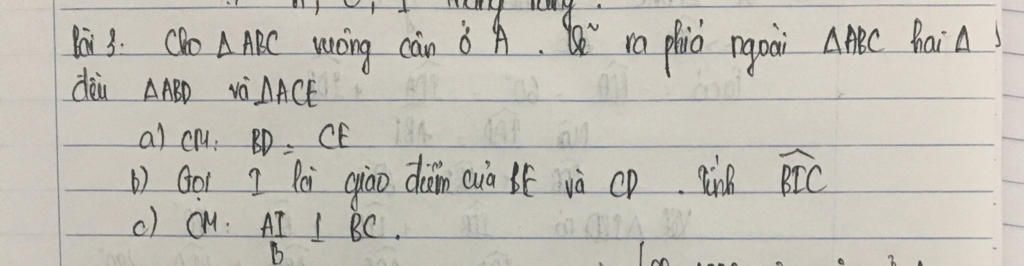 Bài 3. Cho Δ ABC vuông cân ở A. Vẽ ra phía ngoài ΔABC hai Δ
đều ΔABD và ΔACE
a) CM: BD = CE
b) Gọi I là giao điểm của BE và CD. Tính BIC
c) CM: AI ⊥ BC.